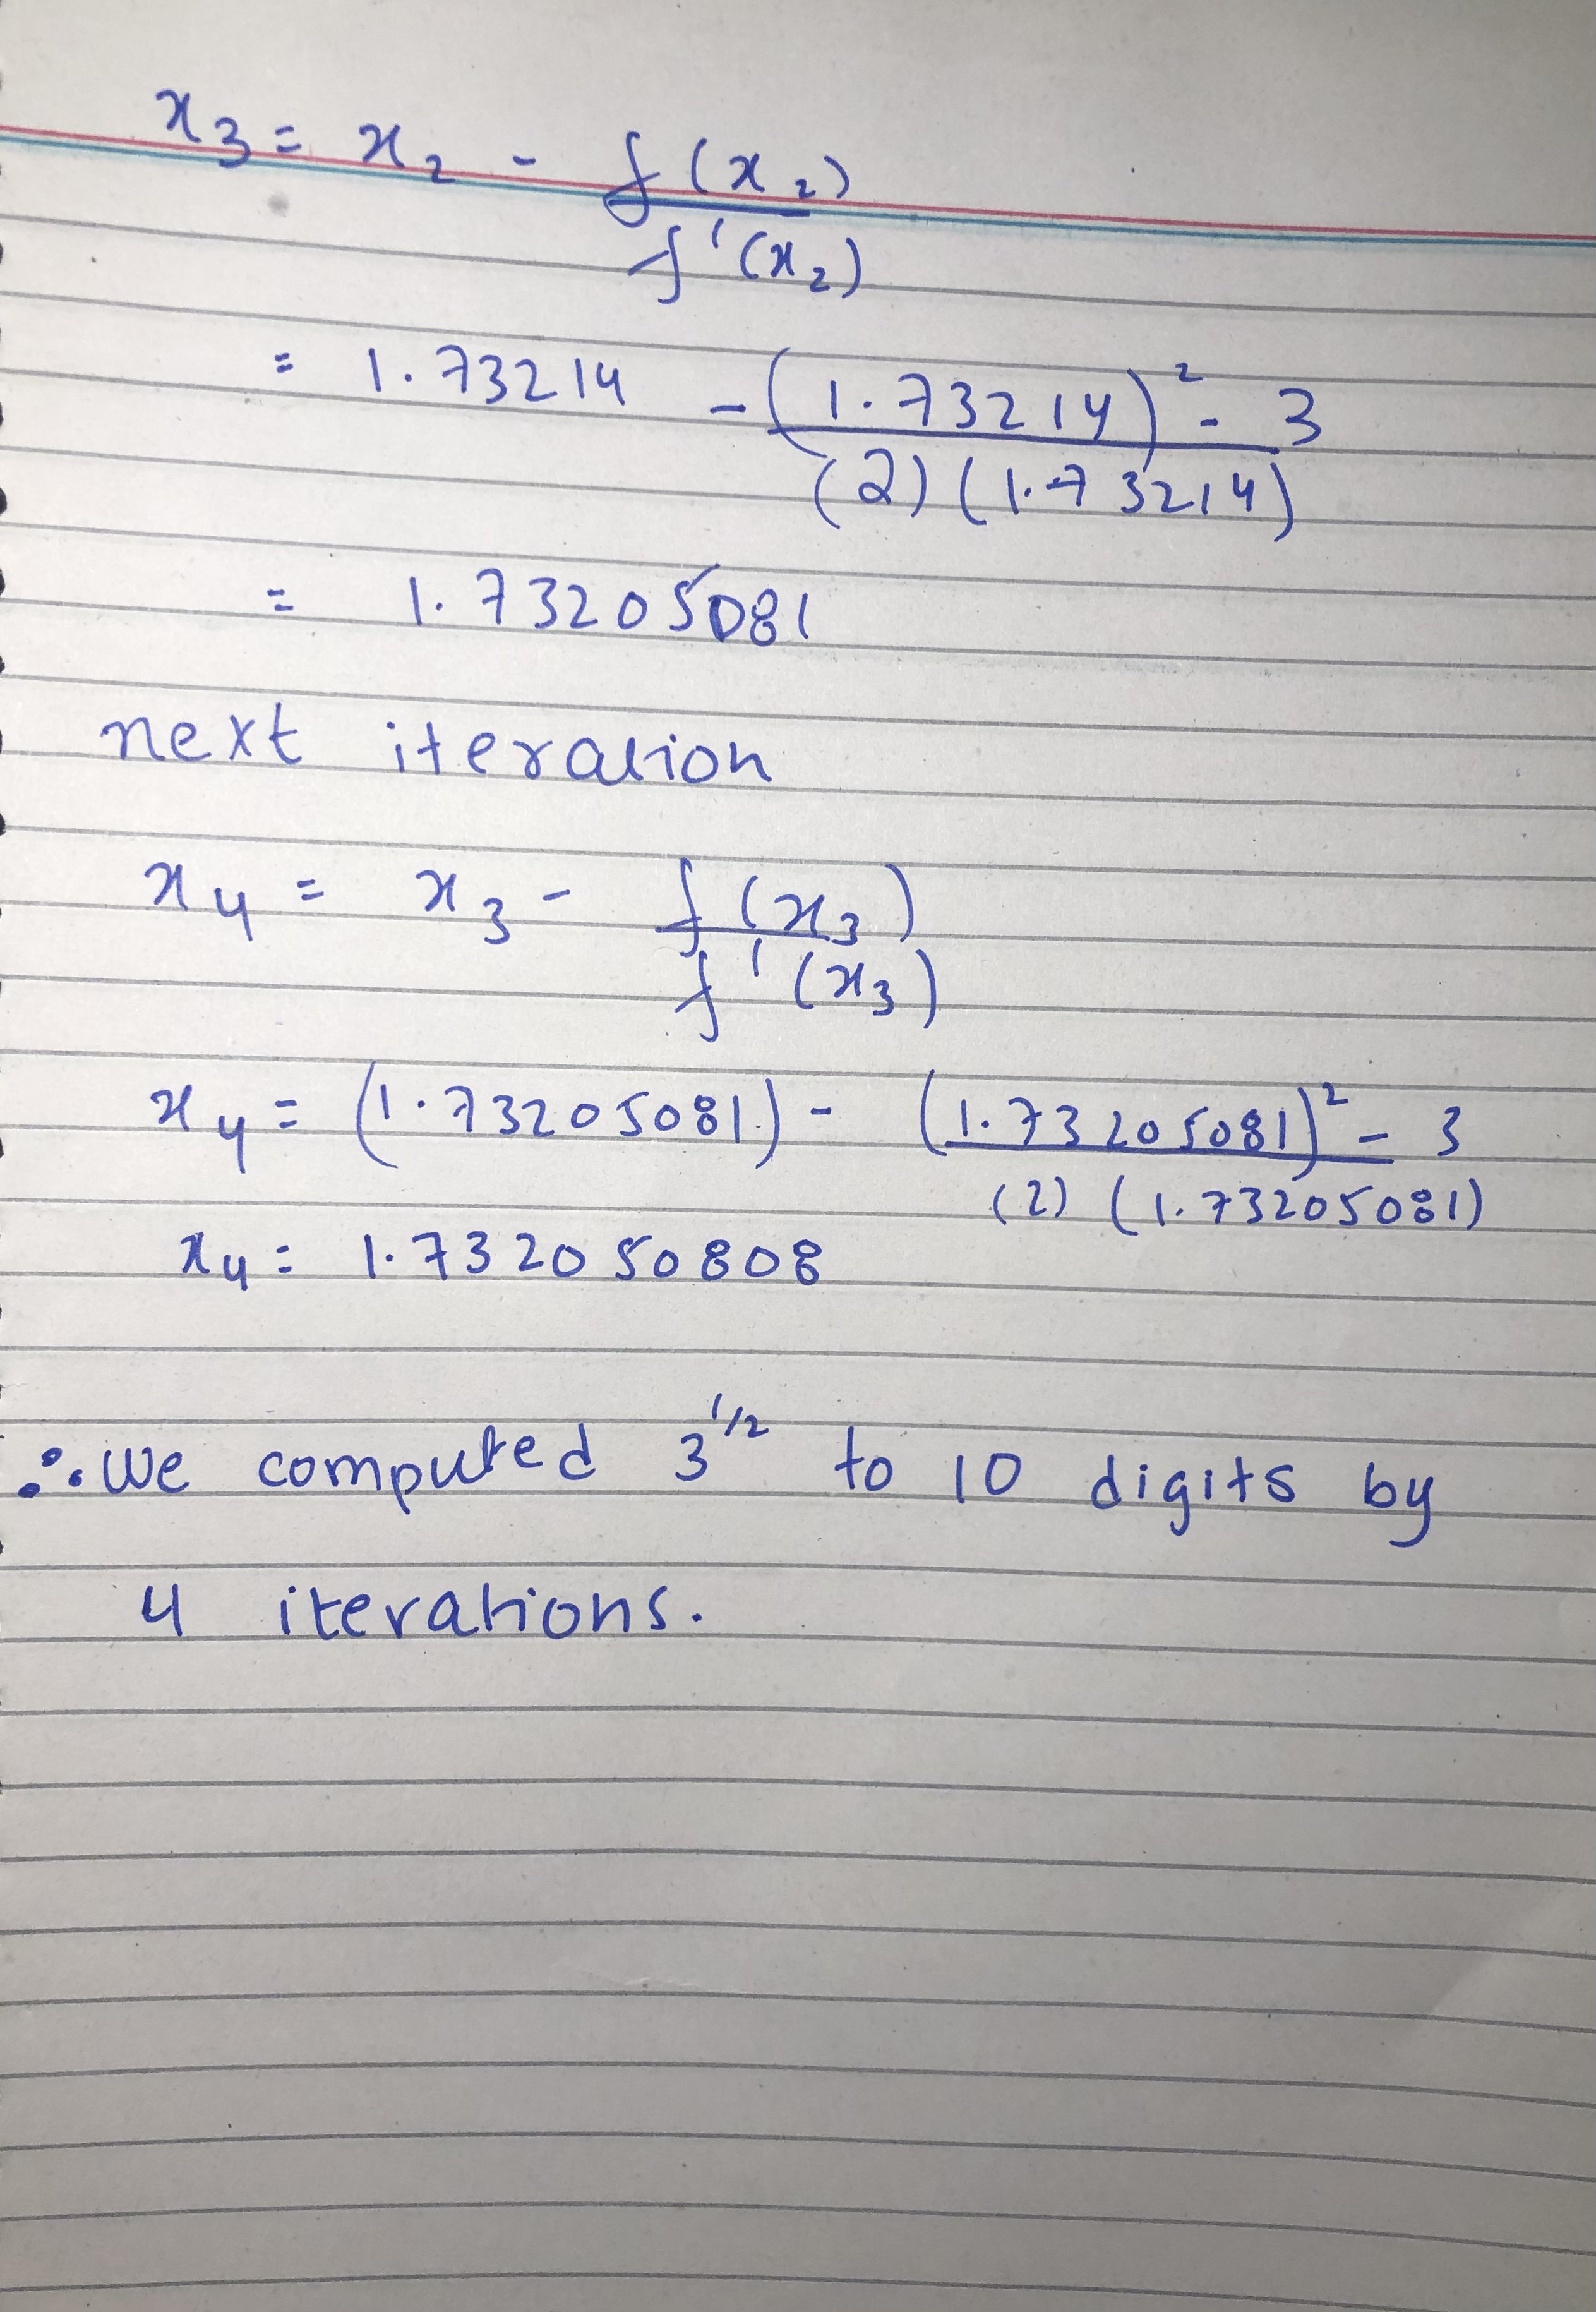 x₃ = x₂ - f(x₂)
f'(x₂)
= 1.73214 - (1.73214)² - 3
(2)(1.73214)
= 1.73205081
next iteration
x₄ = x₃ - f(x₃)
f'(x₃)
x₄ = (1.73205081) - (1.73205081)² - 3
(2) (1.73205081)
x₄ = 1.732050808
∴ We computed 3^1/2 to 10 digits by
4 iterations.